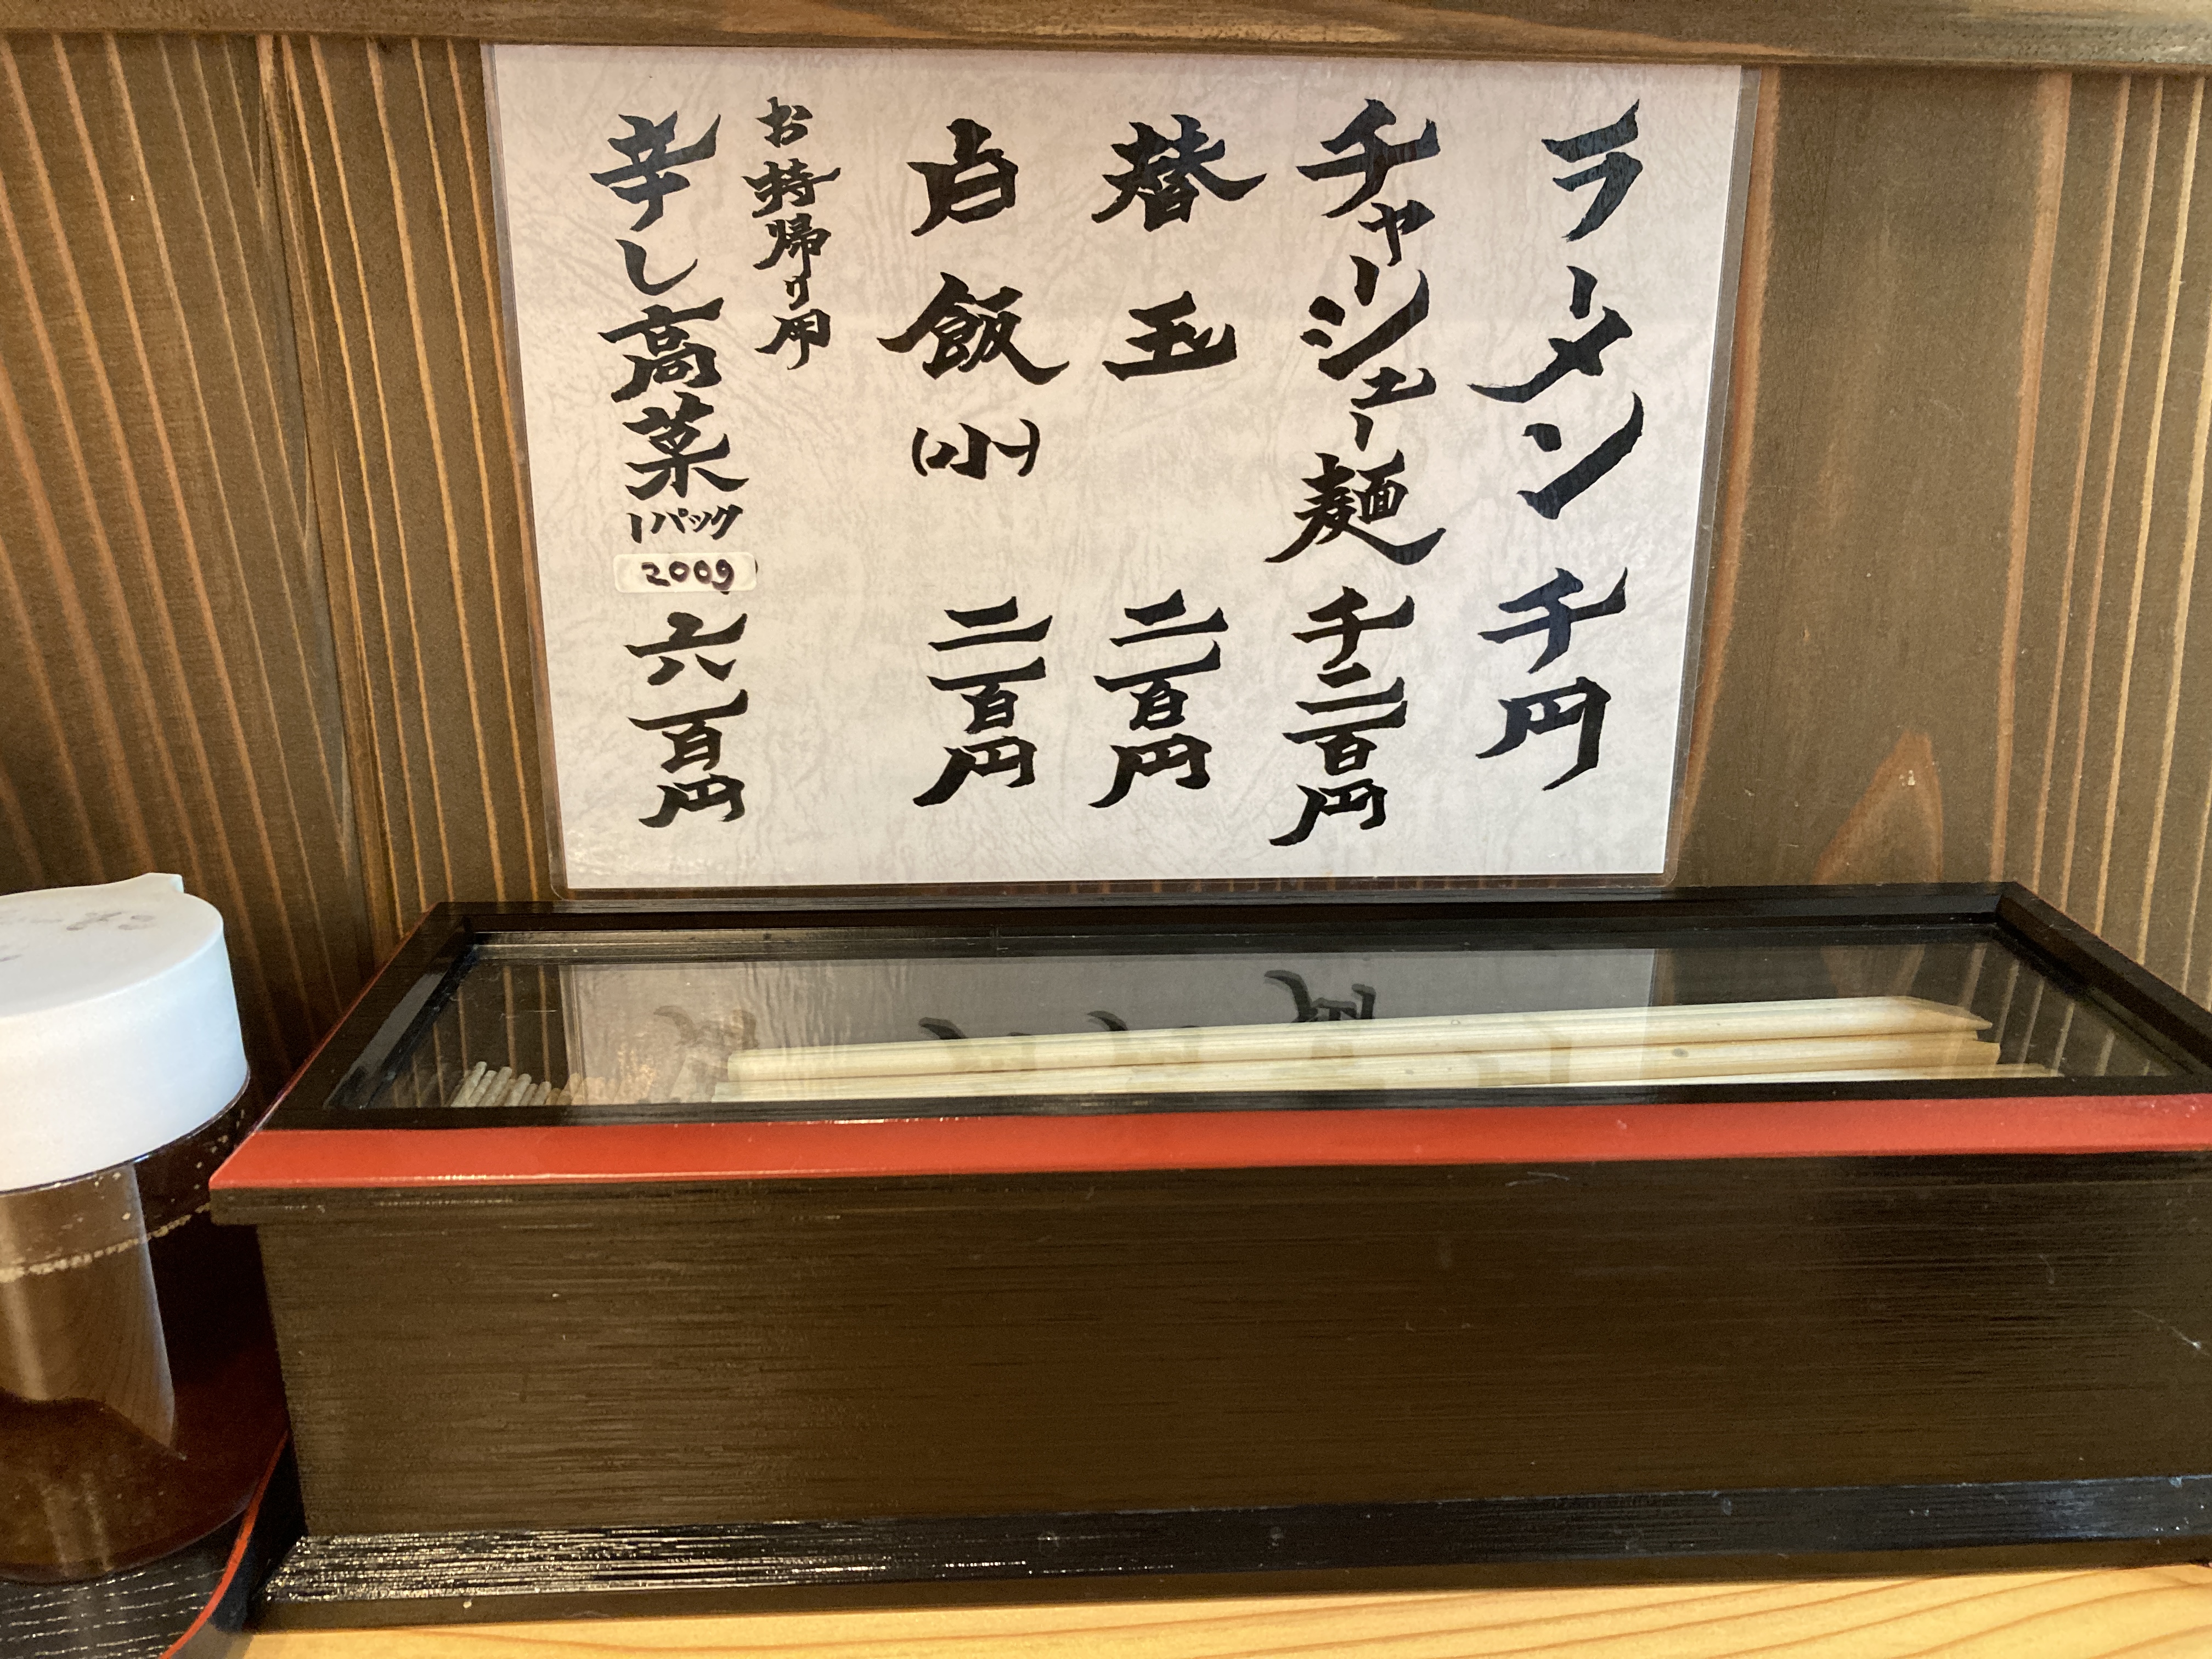 ラーメン 千円
チャーシュー麺 千二百円
替玉 二百円
白飯(小) 二百円
お持帰り用
辛し高菜1パック 200g 六百円